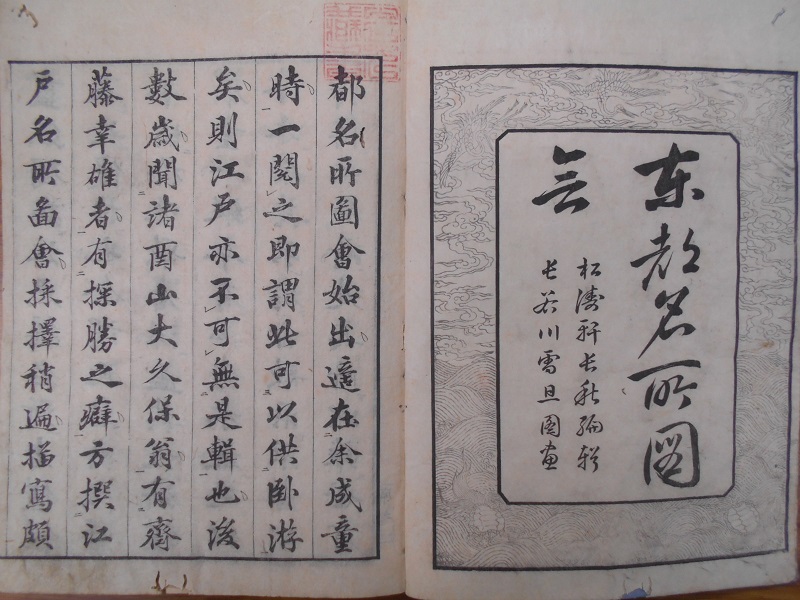 東都名所図
会
松濤軒長秋編輯
長谷川雪旦図画
都名所圖會始出適在余成童
時一閱之即謂此可以供臥游
矣則江戶亦不可無是輯也後
數歲聞諸酉山大久保翁有齋
藤幸雄者有探勝之癖方撰江
戶名所圖會採擇稍遍描寫頗